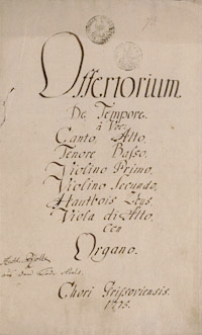 Offertorium.
De Tempore.
à Voc:
Canto, Alto,
Tenore Basso,
Violino Primo,
Violino Secundo,
Hautbois
Viola di Alto,
Con
Organo.
Chori Grissoviensis.